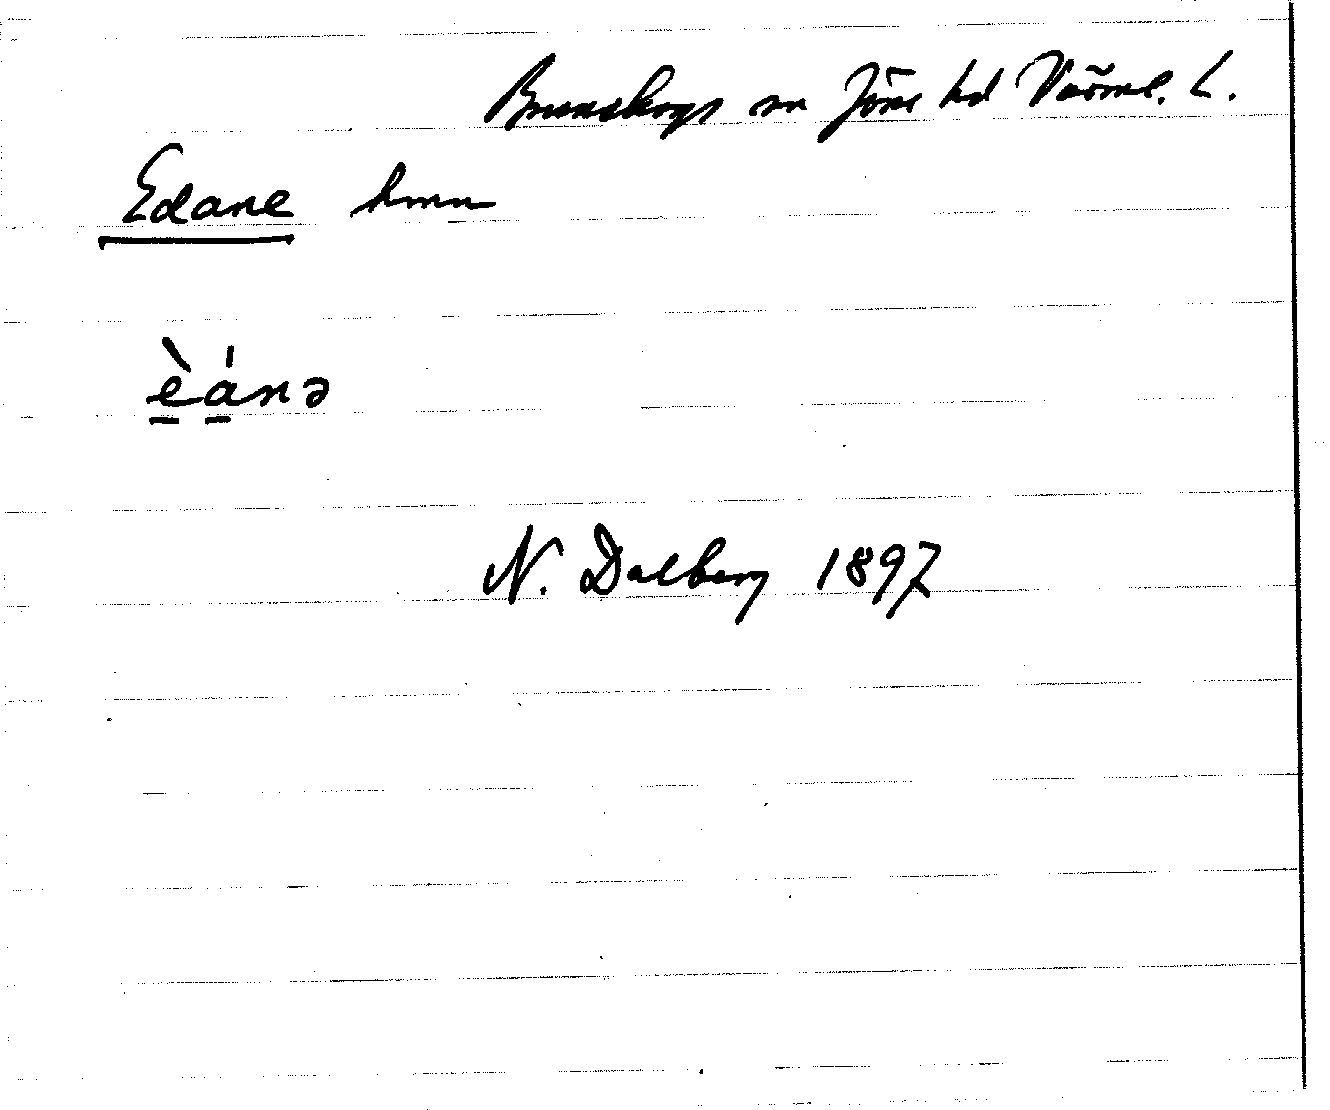 Brunskogs sn Jösse hd Värml. L.
Edane hmn
èánə
N. Dalberg 1897